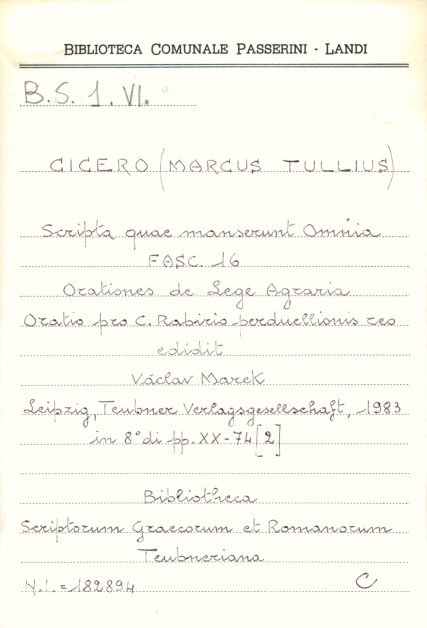 BIBLIOTECA COMUNALE PASSERINI - LANDI
B.S. 1. VI.
CICERO (MARCUS TULLIUS)
Scripta quae manserunt Omnia
FASC. 16
Orationes de Lege Agraria
Oratio pro C. Rabirio perduellionis reo
edidit
Václav Marek
Leipzig, Teubner Verlagsgesellschaft, 1983
in 8° di pp. XX-74[2]
Bibliotheca
Scriptorum Graecorum et Romanorum
Teubneriana
N.I. = 182894 C